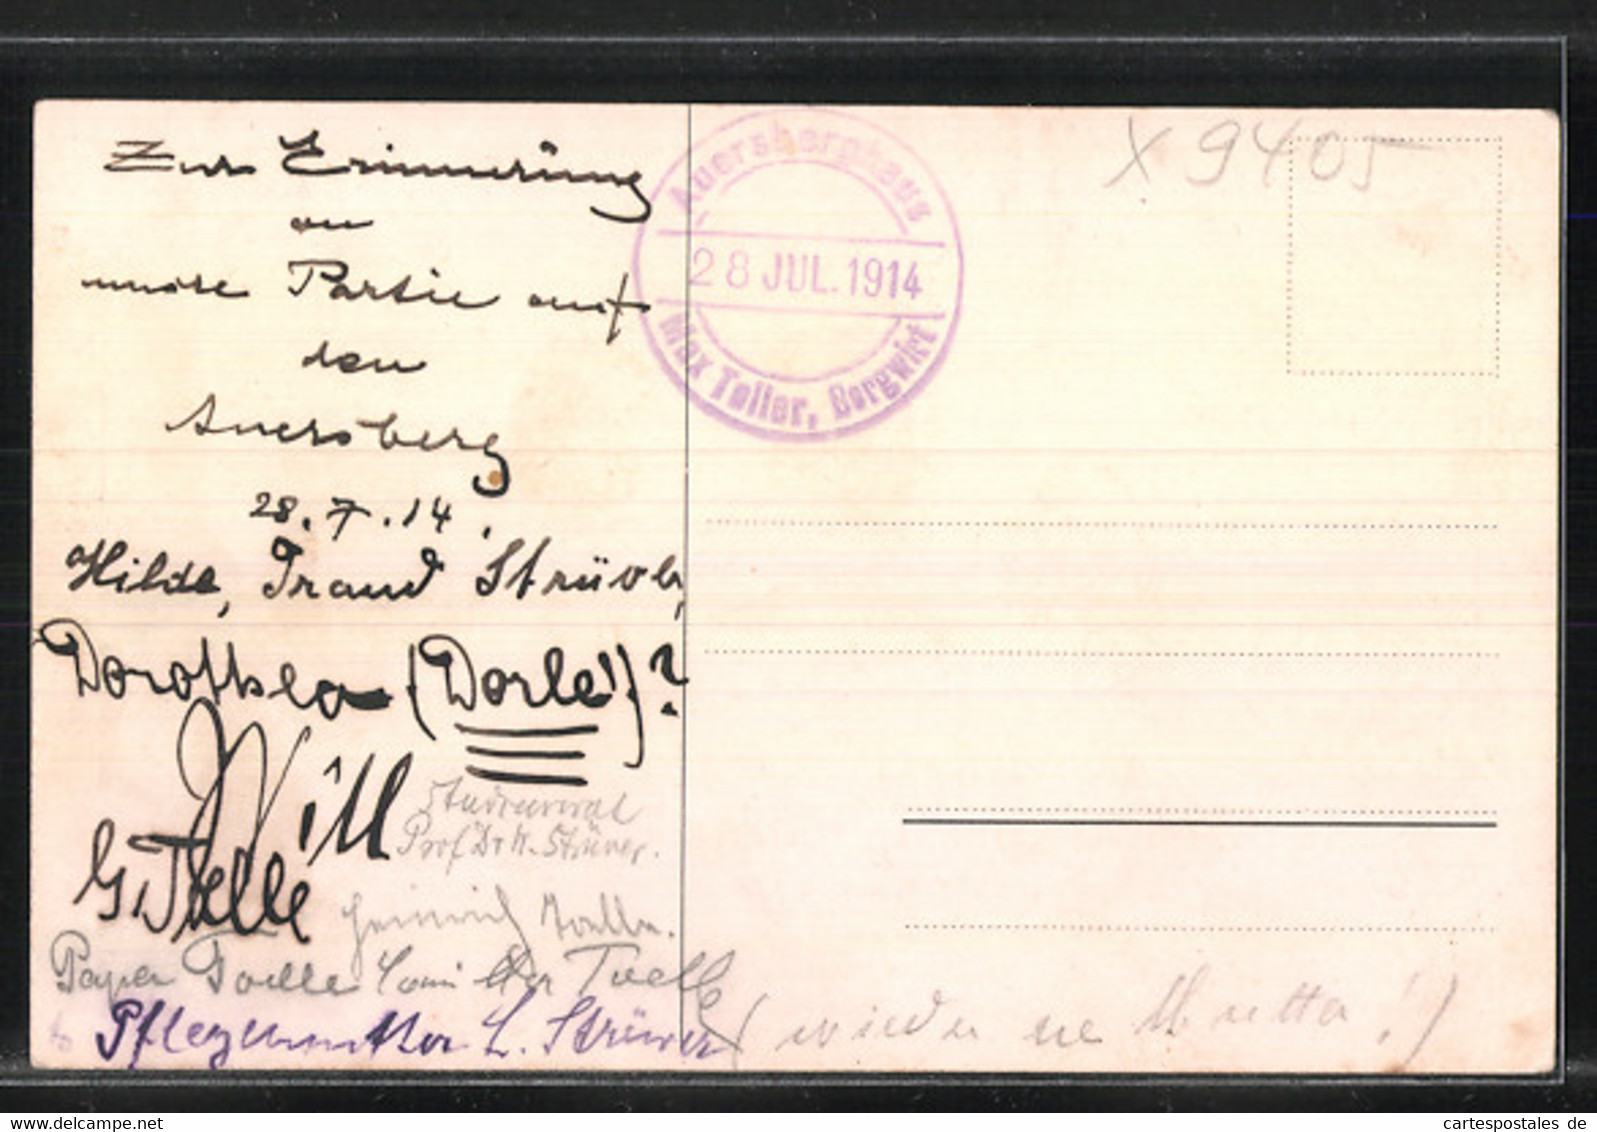 Zur Erinnerung
an
unsre Partie auf
den
Auersberg
28.7.14.
Hilde, Traud Strüver,
Dorothea (Dorle!)?
Willi
Studienrat
Prof Dr H. Strüver.
G. Toelle
Heinrich Toelle.
Papa Toelle Mutter Toelle
Pflegemutter L. Strüver (wieder ne Mutter!)
Auersberghaus
28 JUL. 1914
Max Teller, Bergwirt
X 9405
cartespostales de